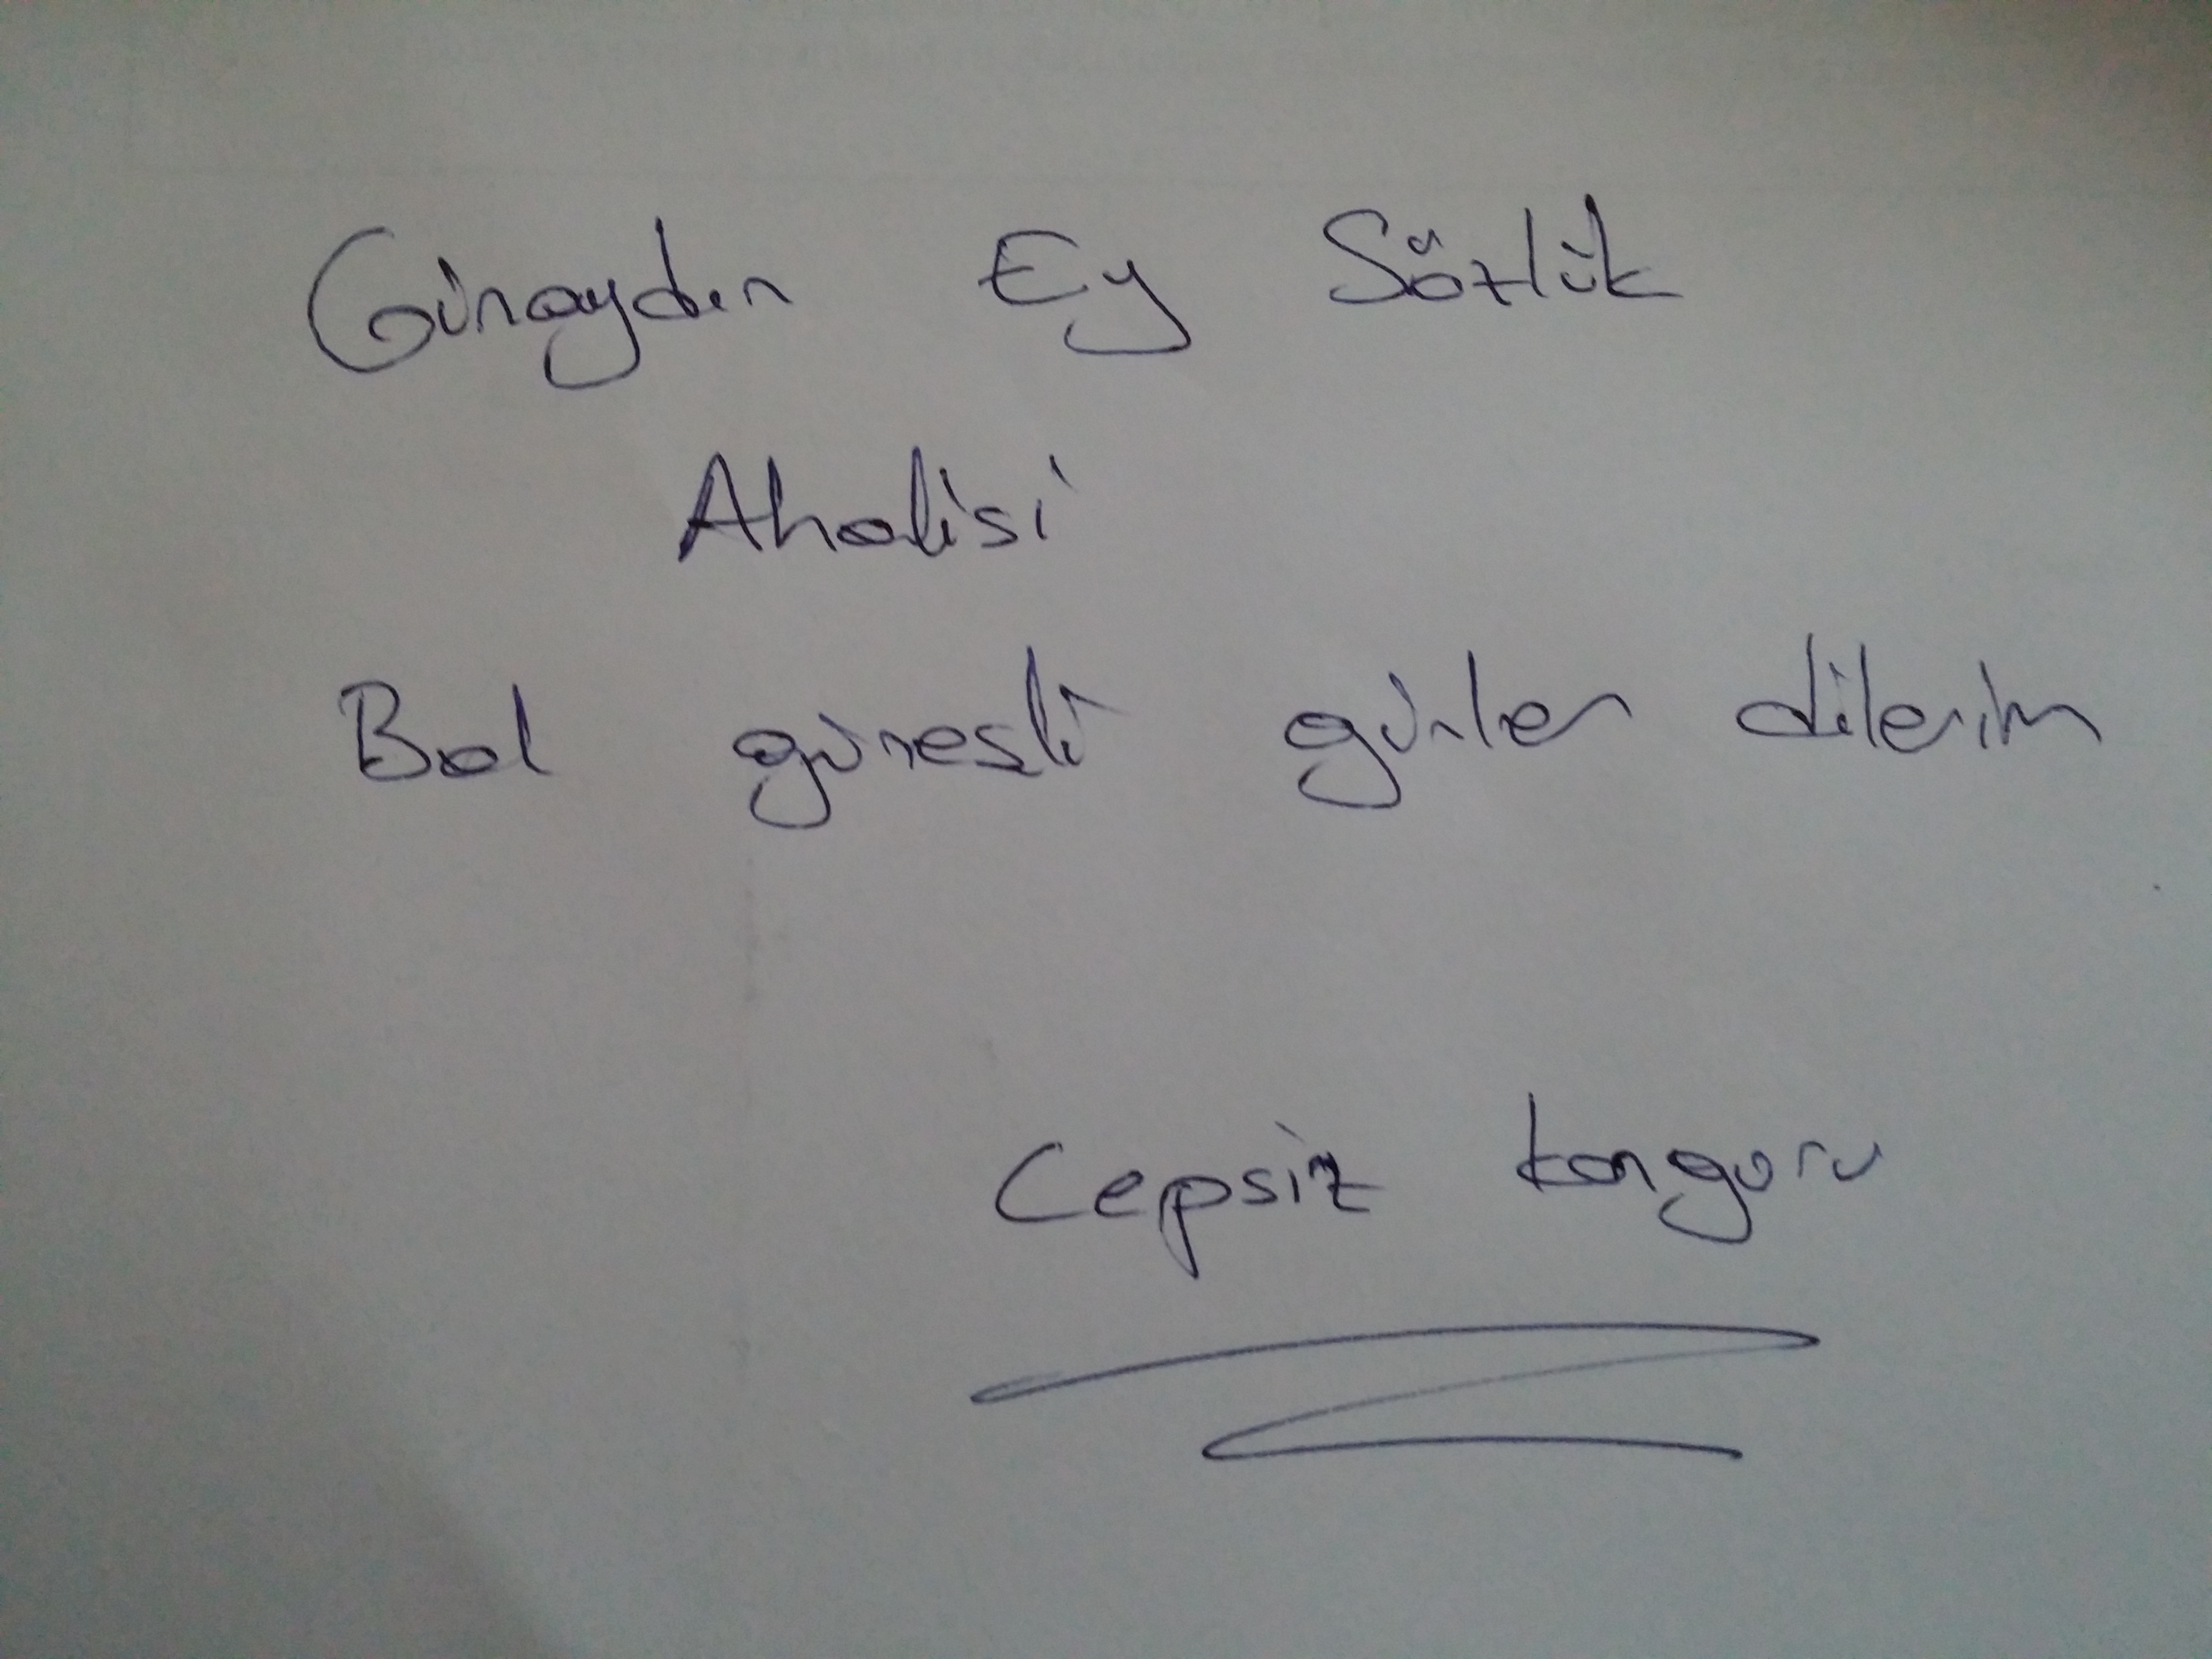 Günaydın Ey Sözlük
Ahalisi
Bol güneşli günler dilerim
Cepsiz kanguru